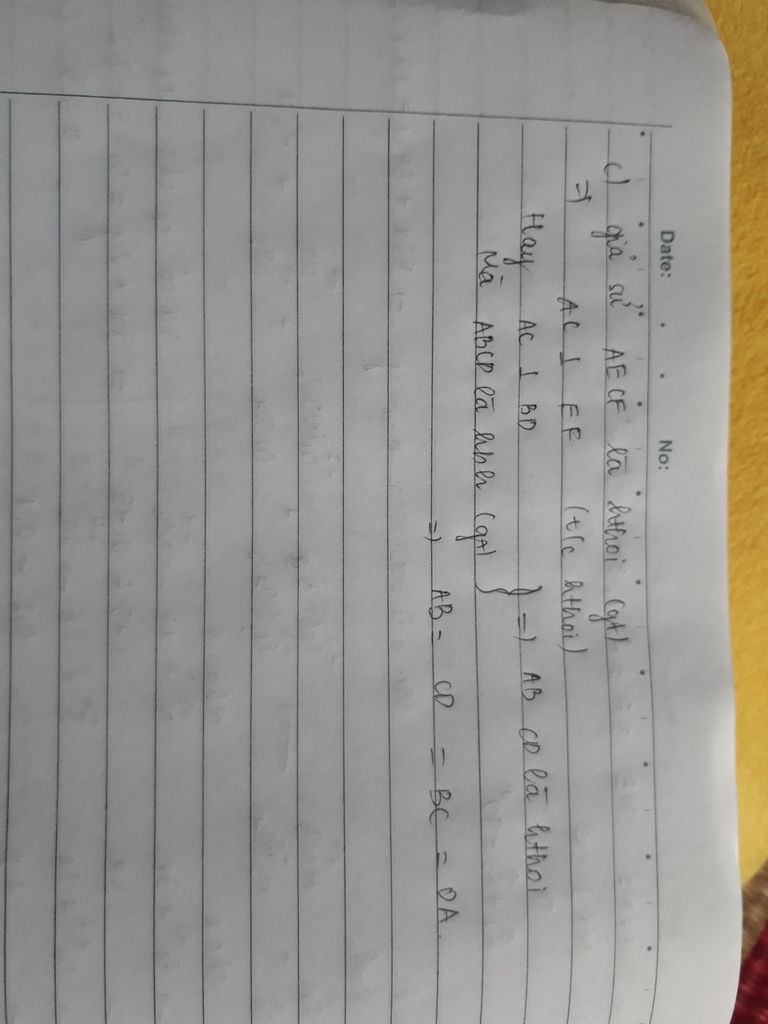 Date: No:
c) giả sử AECF là hthoi (gt)
=) AC ⊥ EF (t/c hthoi)
Hay AC ⊥ BD } =) AB CD là hthoi
Mà ABCD là hbh (gt)
=) AB = CD = BC = DA.